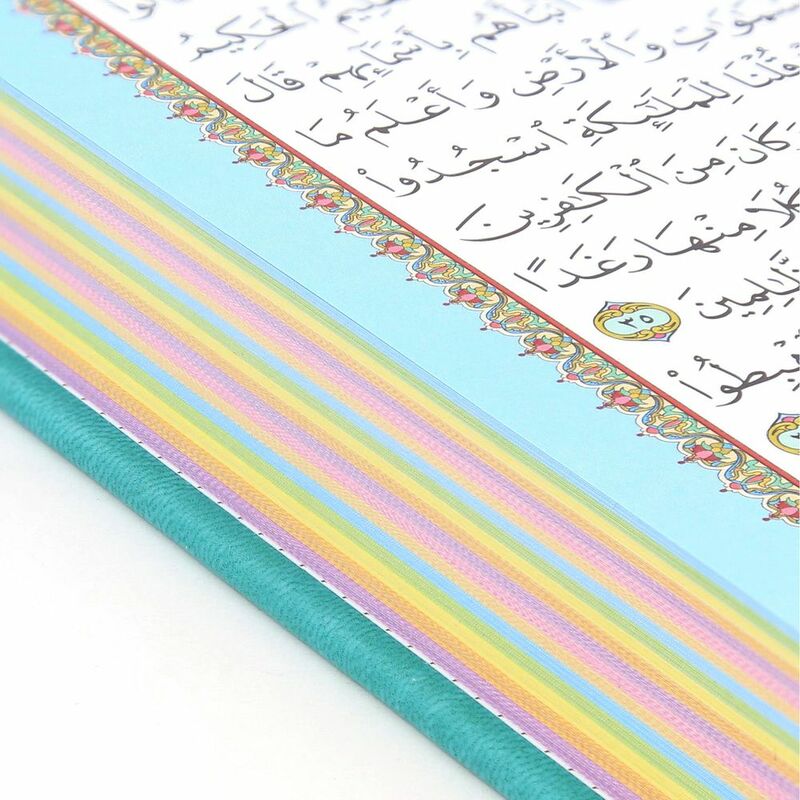 ٱلْحَكِيمُ
أَنۢبَأَهُم بِأَسْمَآئِهِمْ قَالَ
وَٱلْأَرْضِ وَأَعْلَمُ مَا
قُلْنَا لِلْمَلَٰٓئِكَةِ ٱسْجُدُوا۟
كَانَ مِنَ ٱلْكَٰفِرِينَ
مِنْهَا رَغَدًا
ٱلظَّٰلِمِينَ ٣٥
ٱهْبِطُوا۟